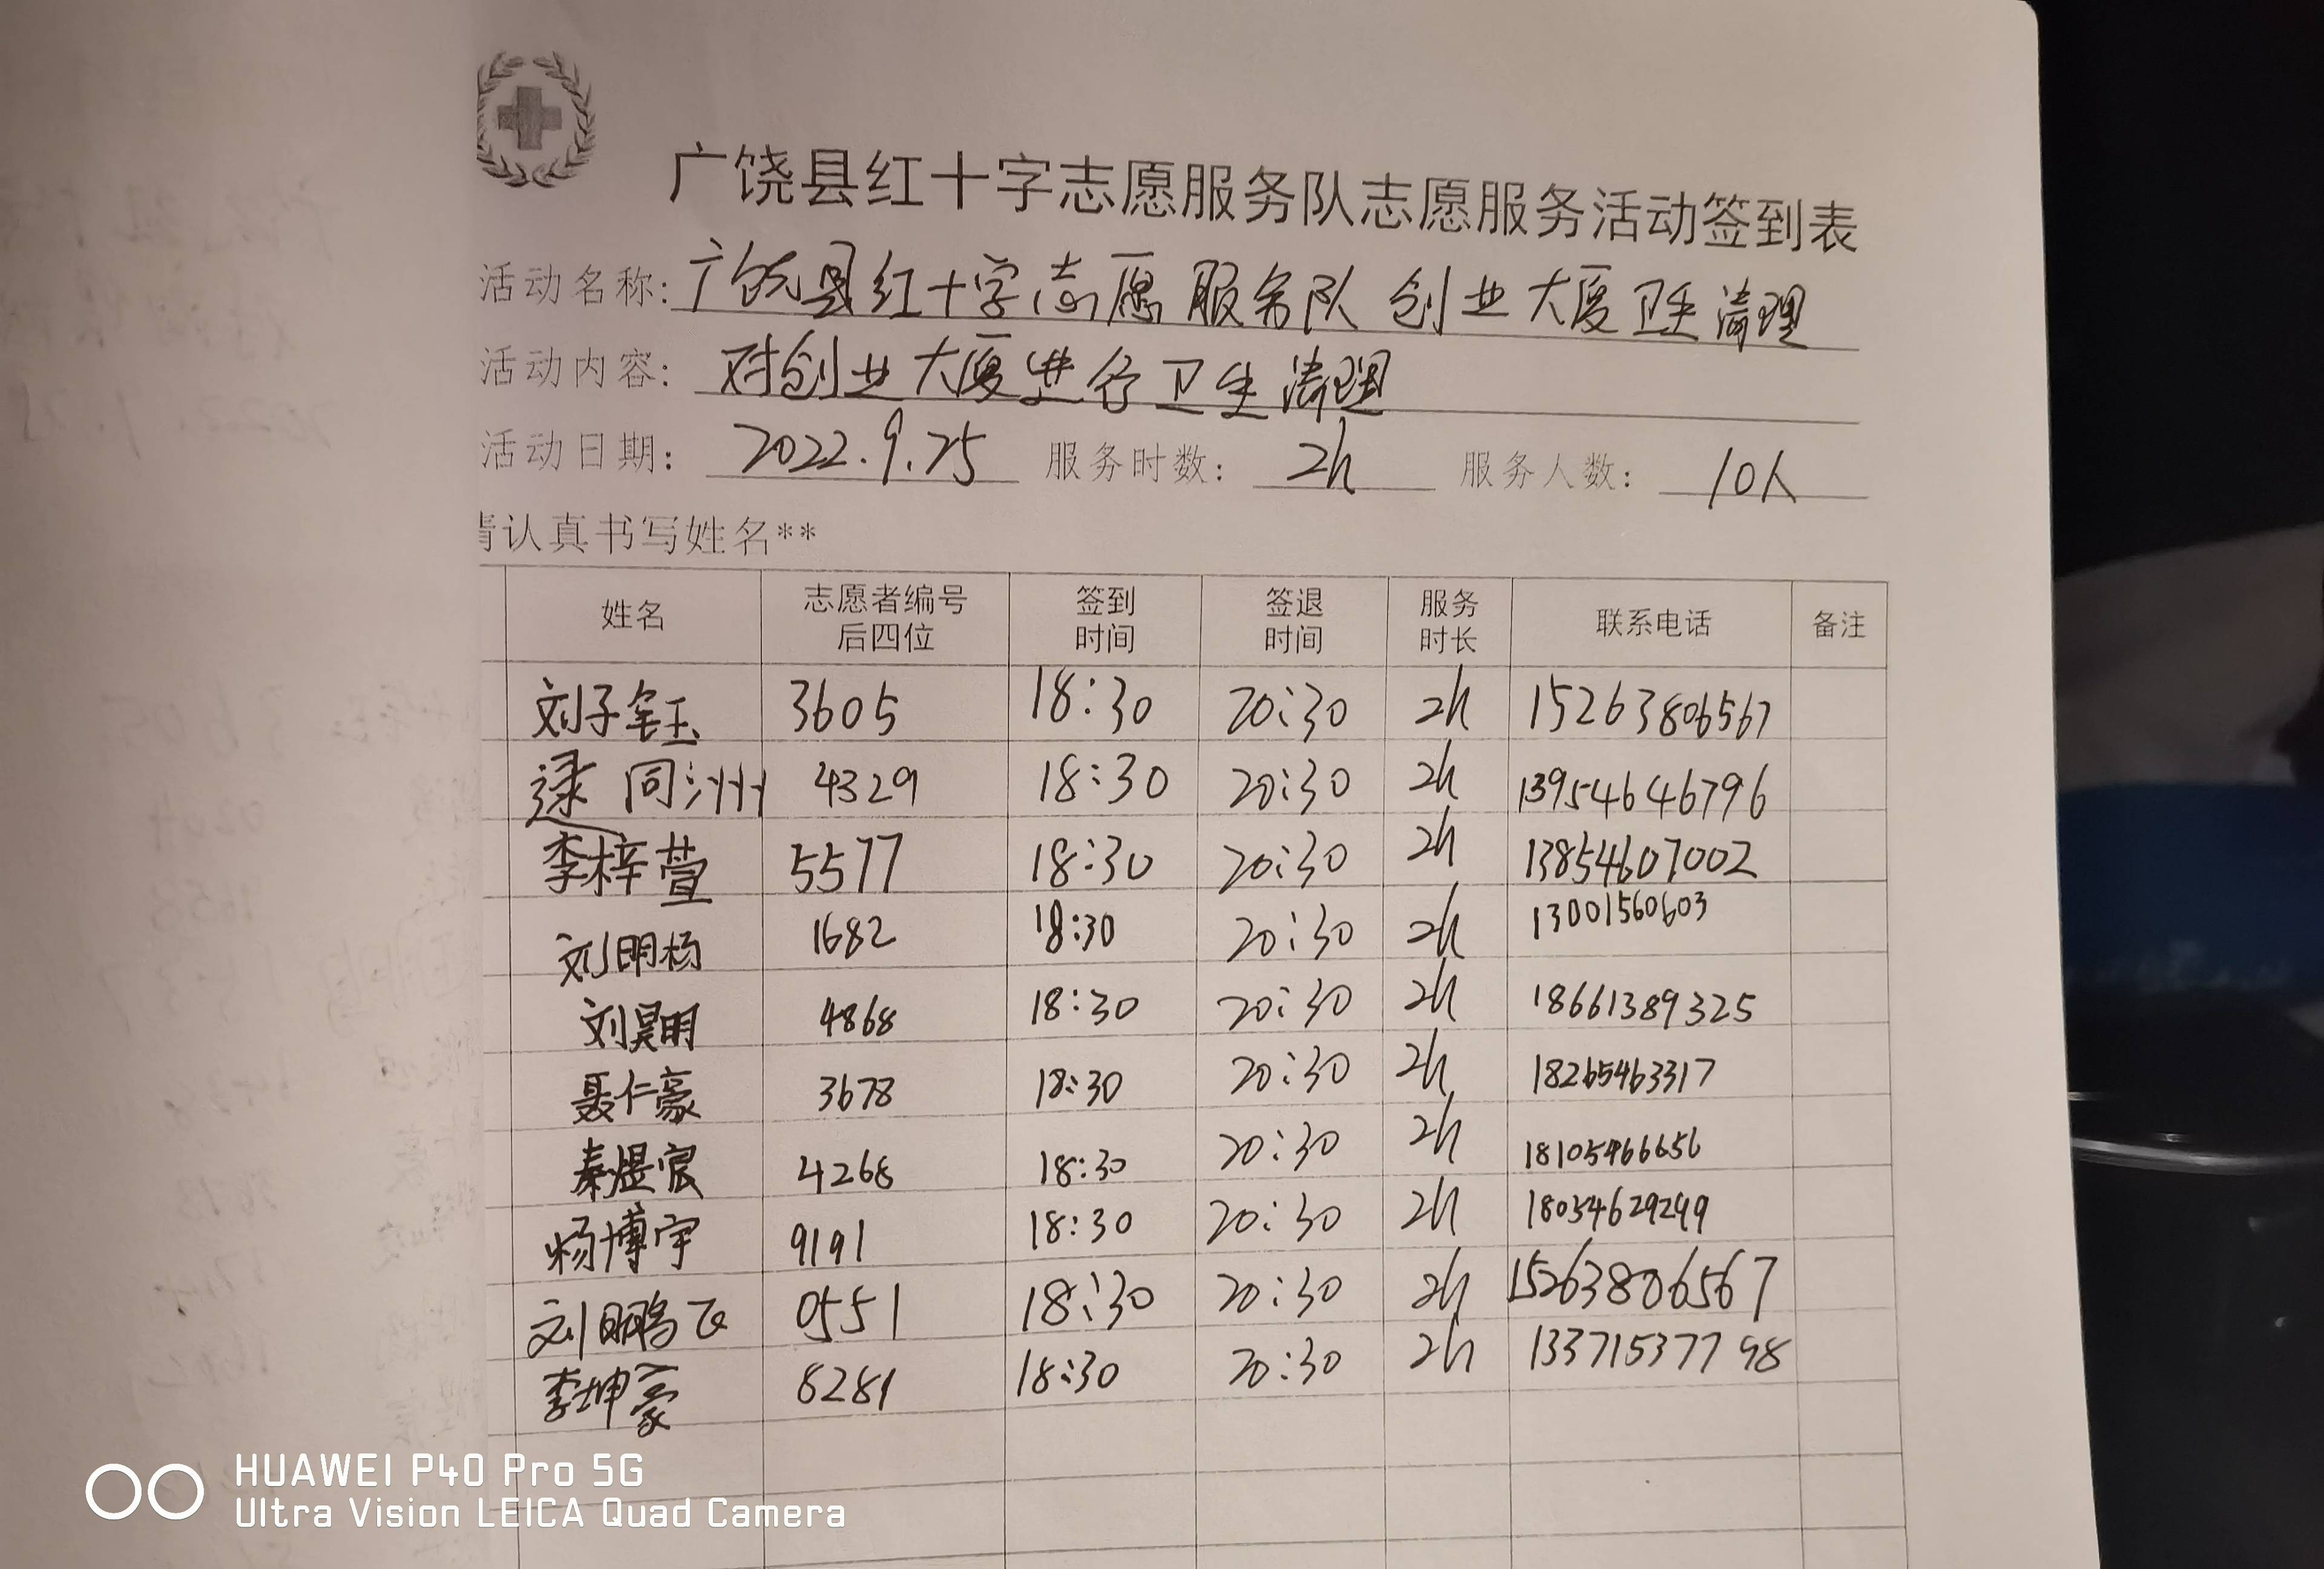 广饶县红十字志愿服务队志愿服务活动签到表
活动名称: 广饶县红十字志愿服务队 创业大厦卫生清理
活动内容: 对创业大厦进行卫生清理
活动日期: 2022.9.25 服务时数: 2h 服务人数: 10人
请认真书写姓名**
姓名 志愿者编号后四位 签到时间 签退时间 服务时长 联系电话 备注
刘子钰 3605 18:30 20:30 2h 15263806567
逯同洲 4329 18:30 20:30 2h 13954646796
李梓萱 5577 18:30 20:30 2h 13854607002
刘明杨 1682 18:30 20:30 2h 13001560603
刘昊明 4868 18:30 20:30 2h 18661389325
聂仁豪 3678 18:30 20:30 2h 18265463317
秦煜宸 4268 18:30 20:30 2h 18105466656
杨博宇 9191 18:30 20:30 2h 18054629299
刘鹏飞 0551 18:30 20:30 2h 15263806567
李坤豪 8281 18:30 20:30 2h 13371537798
HUAWEI P40 Pro 5G
Ultra Vision LEICA Quad Camera